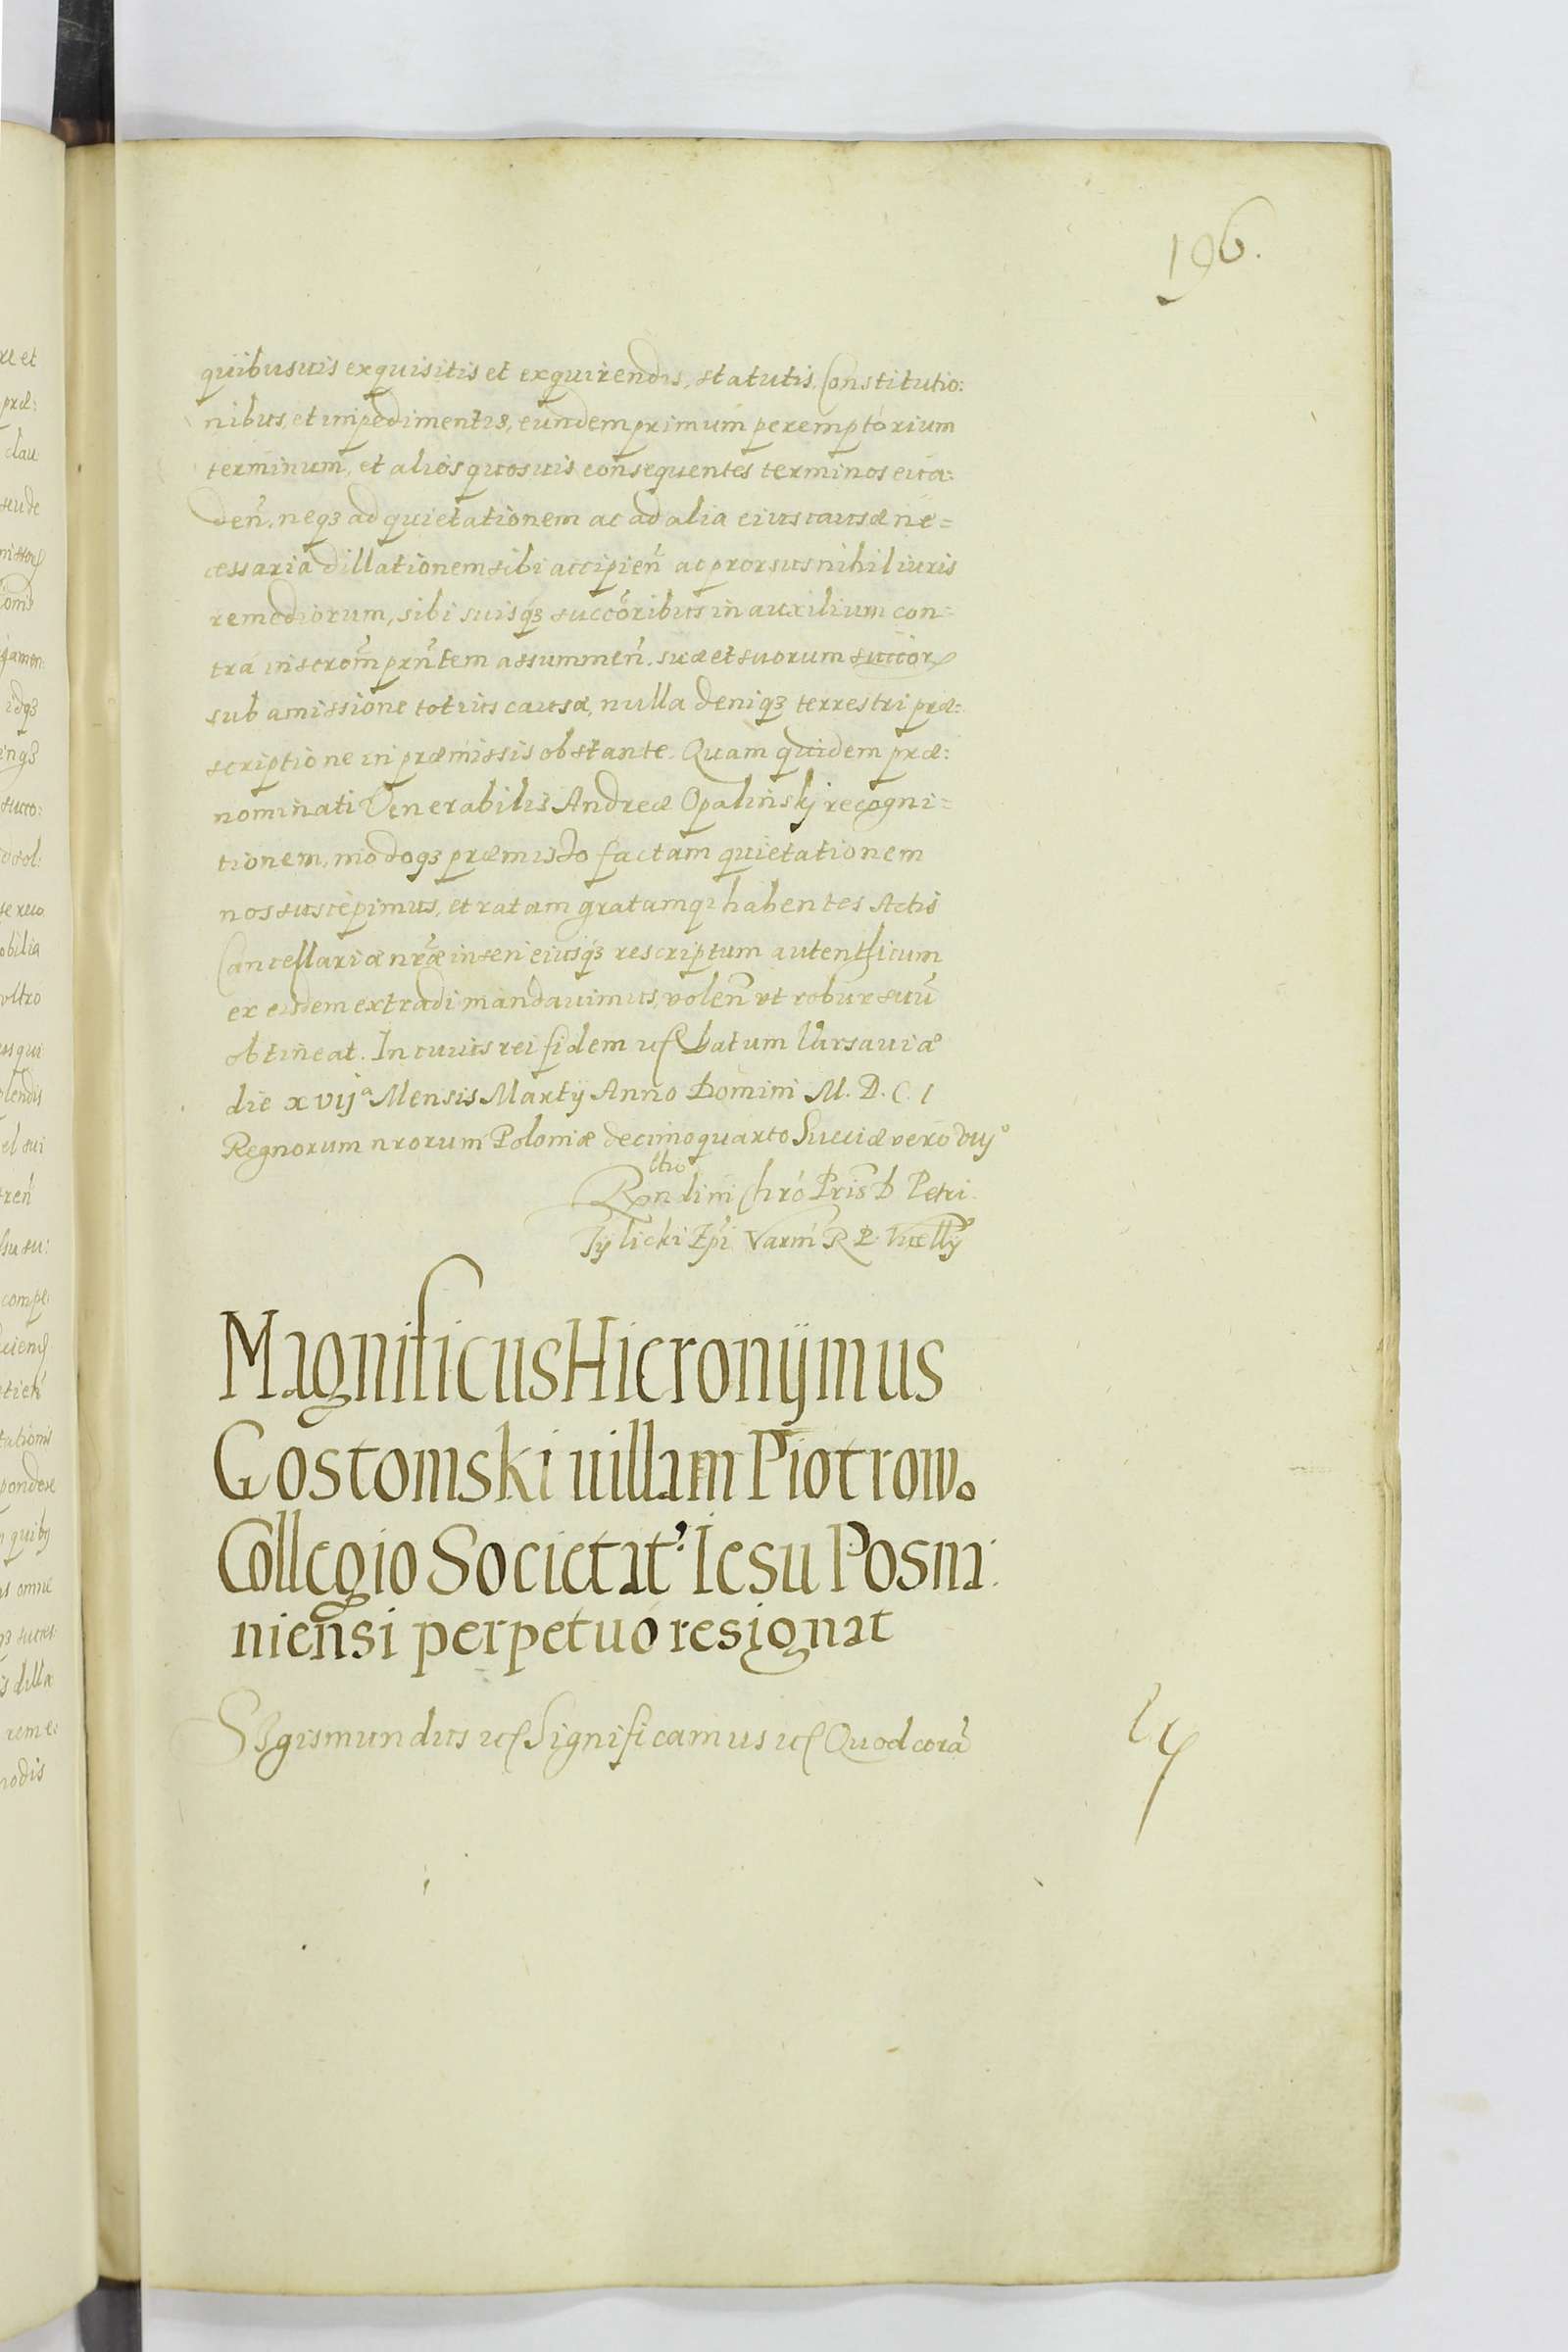 196.
quibusuis exquisitis et exquirendis, statutis, Constitutio:
nibus, et impedimentis, eundem primum peremptorium
terminum, et alios quosuis consequentes terminos euа:
den̄. neqȝ ad quietationem ac ad alia eius causæ ne=
cessaria dillationem sibi accipien̄ ac prorsus nihil iuris
remediorum, sibi suisqȝ succoribus in auxilium con=
tra inscrom̄ prn̄tem assummen̄. suæ et suorum succor
sub amissione totius causæ, nulla deniqȝ terrestri præ:
scriptione in præmissis obstante. Quam quidem præ:
nominati Venerabilis Andreæ Opalinskj recogni=
tionem, modoqȝ præmisso factam quietationem
nos suscepimus, et ratam gratamqȝ habentes Actis
Cancellariæ nr̄æ inseri eiusqȝ rescriptum autenthicum
ex eisdem extradi mandauimus, volen̄ vt robur suū
obtineat. In cuius rei fidem etc Datum Varsauiæ
die xvijª Mensis Martij Anno Domini M. D. C. I
Regnorum nrorum Poloniæ decimoquarto Sueciæ vero vıȷ°
Rx̄n̄ dini Chrō Pris D Petri
Tylicki Ep̄i Varm̄ R P. Vicell̄
Magnificus Hieronÿmus
Gostomski uillam Piotrowo
Collegio Societat: Iesu Posna:
niensi perpetuó resignat
Sigismundus etc Significamus etc Quod corā